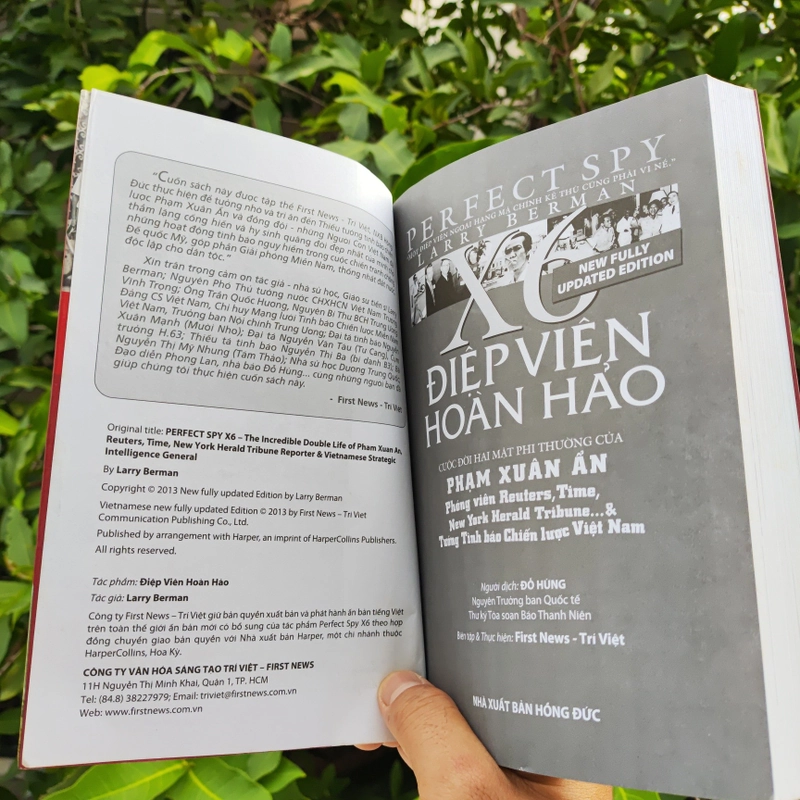 "Cuốn sách này được tập thể First News - Trí Việt
Đức thực hiện để tưởng nhớ và tri ân đến Thiếu tướng tình báo
lược Phạm Xuân Ẩn và đồng đội - những Người Con Việt Nam
thầm lặng cống hiến và hy sinh quãng đời đẹp nhất của mình
những hoạt động tình báo nguy hiểm trong cuộc chiến tranh
Đế quốc Mỹ, góp phần Giải phóng Miền Nam, thống nhất đất nước,
độc lập cho dân tộc."
Xin trân trọng cảm ơn tác giả - nhà sử học, Giáo sư tiến sĩ Larry
Berman; Nguyên Phó Thủ tướng nước CHXHCN Việt Nam Trương
Vĩnh Trọng; Ông Trần Quốc Hương, Nguyên Bí Thư BCH Trung Ương
Đảng CS Việt Nam, Chỉ huy Mạng lưới Tình báo Chiến lược Miền Nam
Việt Nam, Trưởng ban Nội chính Trung Ương; Đại tá tình báo Nguyễn
Xuân Mạnh (Mười Nho); Đại tá Nguyễn Văn Tàu (Tư Cang), Cụm
trưởng H.63; Thiếu tá tình báo Nguyễn Thị Ba (bí danh B3); Bà
Nguyễn Thị Mỹ Nhung (Tám Thảo); Nhà sử học Dương Trung Quốc,
Đạo diễn Phong Lan, nhà báo Đỗ Hùng... cùng những người bạn đã
giúp chúng tôi thực hiện cuốn sách này.
- First News - Trí Việt
Original title: PERFECT SPY X6 – The Incredible Double Life of Pham Xuan An,
Reuters, Time, New York Herald Tribune Reporter & Vietnamese Strategic
Intelligence General
By Larry Berman
Copyright © 2013 New fully updated Edition by Larry Berman
Vietnamese new fully updated Edition © 2013 by First News – Tri Viet
Communication Publishing Co., Ltd.
Published by arrangement with Harper, an imprint of HarperCollins Publishers.
All rights reserved.
Tác phẩm: Điệp Viên Hoàn Hảo
Tác giả: Larry Berman
Công ty First News – Trí Việt giữ bản quyền xuất bản và phát hành ấn bản tiếng Việt
trên toàn thế giới ấn bản mới có bổ sung của tác phẩm Perfect Spy X6 theo hợp
đồng chuyển giao bản quyền với Nhà xuất bản Harper, một chi nhánh thuộc
HarperCollins, Hoa Kỳ.
CÔNG TY VĂN HÓA SÁNG TẠO TRÍ VIỆT – FIRST NEWS
11H Nguyễn Thị Minh Khai, Quận 1, TP. HCM
Tel: (84.8) 38227979; Email: triviet@firstnews.com.vn
Web: www.firstnews.com.vn
PERFECT SPY
ĐIỆP VIÊN NGOẠI HẠNG MÀ CHÍNH KẺ THÙ CŨNG PHẢI VỊ NỂ."
LARRY BERMAN
X6
NEW FULLY
UPDATED EDITION
ĐIỆP VIÊN
HOÀN HẢO
CUỘC ĐỜI HAI MẶT PHI THƯỜNG CỦA
PHẠM XUÂN ẨN
Phóng viên Reuters, Time,
New York Herald Tribune...&
Tướng Tình báo Chiến lược Việt Nam
Người dịch: ĐỖ HÙNG
Nguyên Trưởng ban Quốc tế
Thư ký Tòa soạn Báo Thanh Niên
Biên tập & Thực hiện: First News - Trí Việt
NHÀ XUẤT BẢN HỒNG ĐỨC